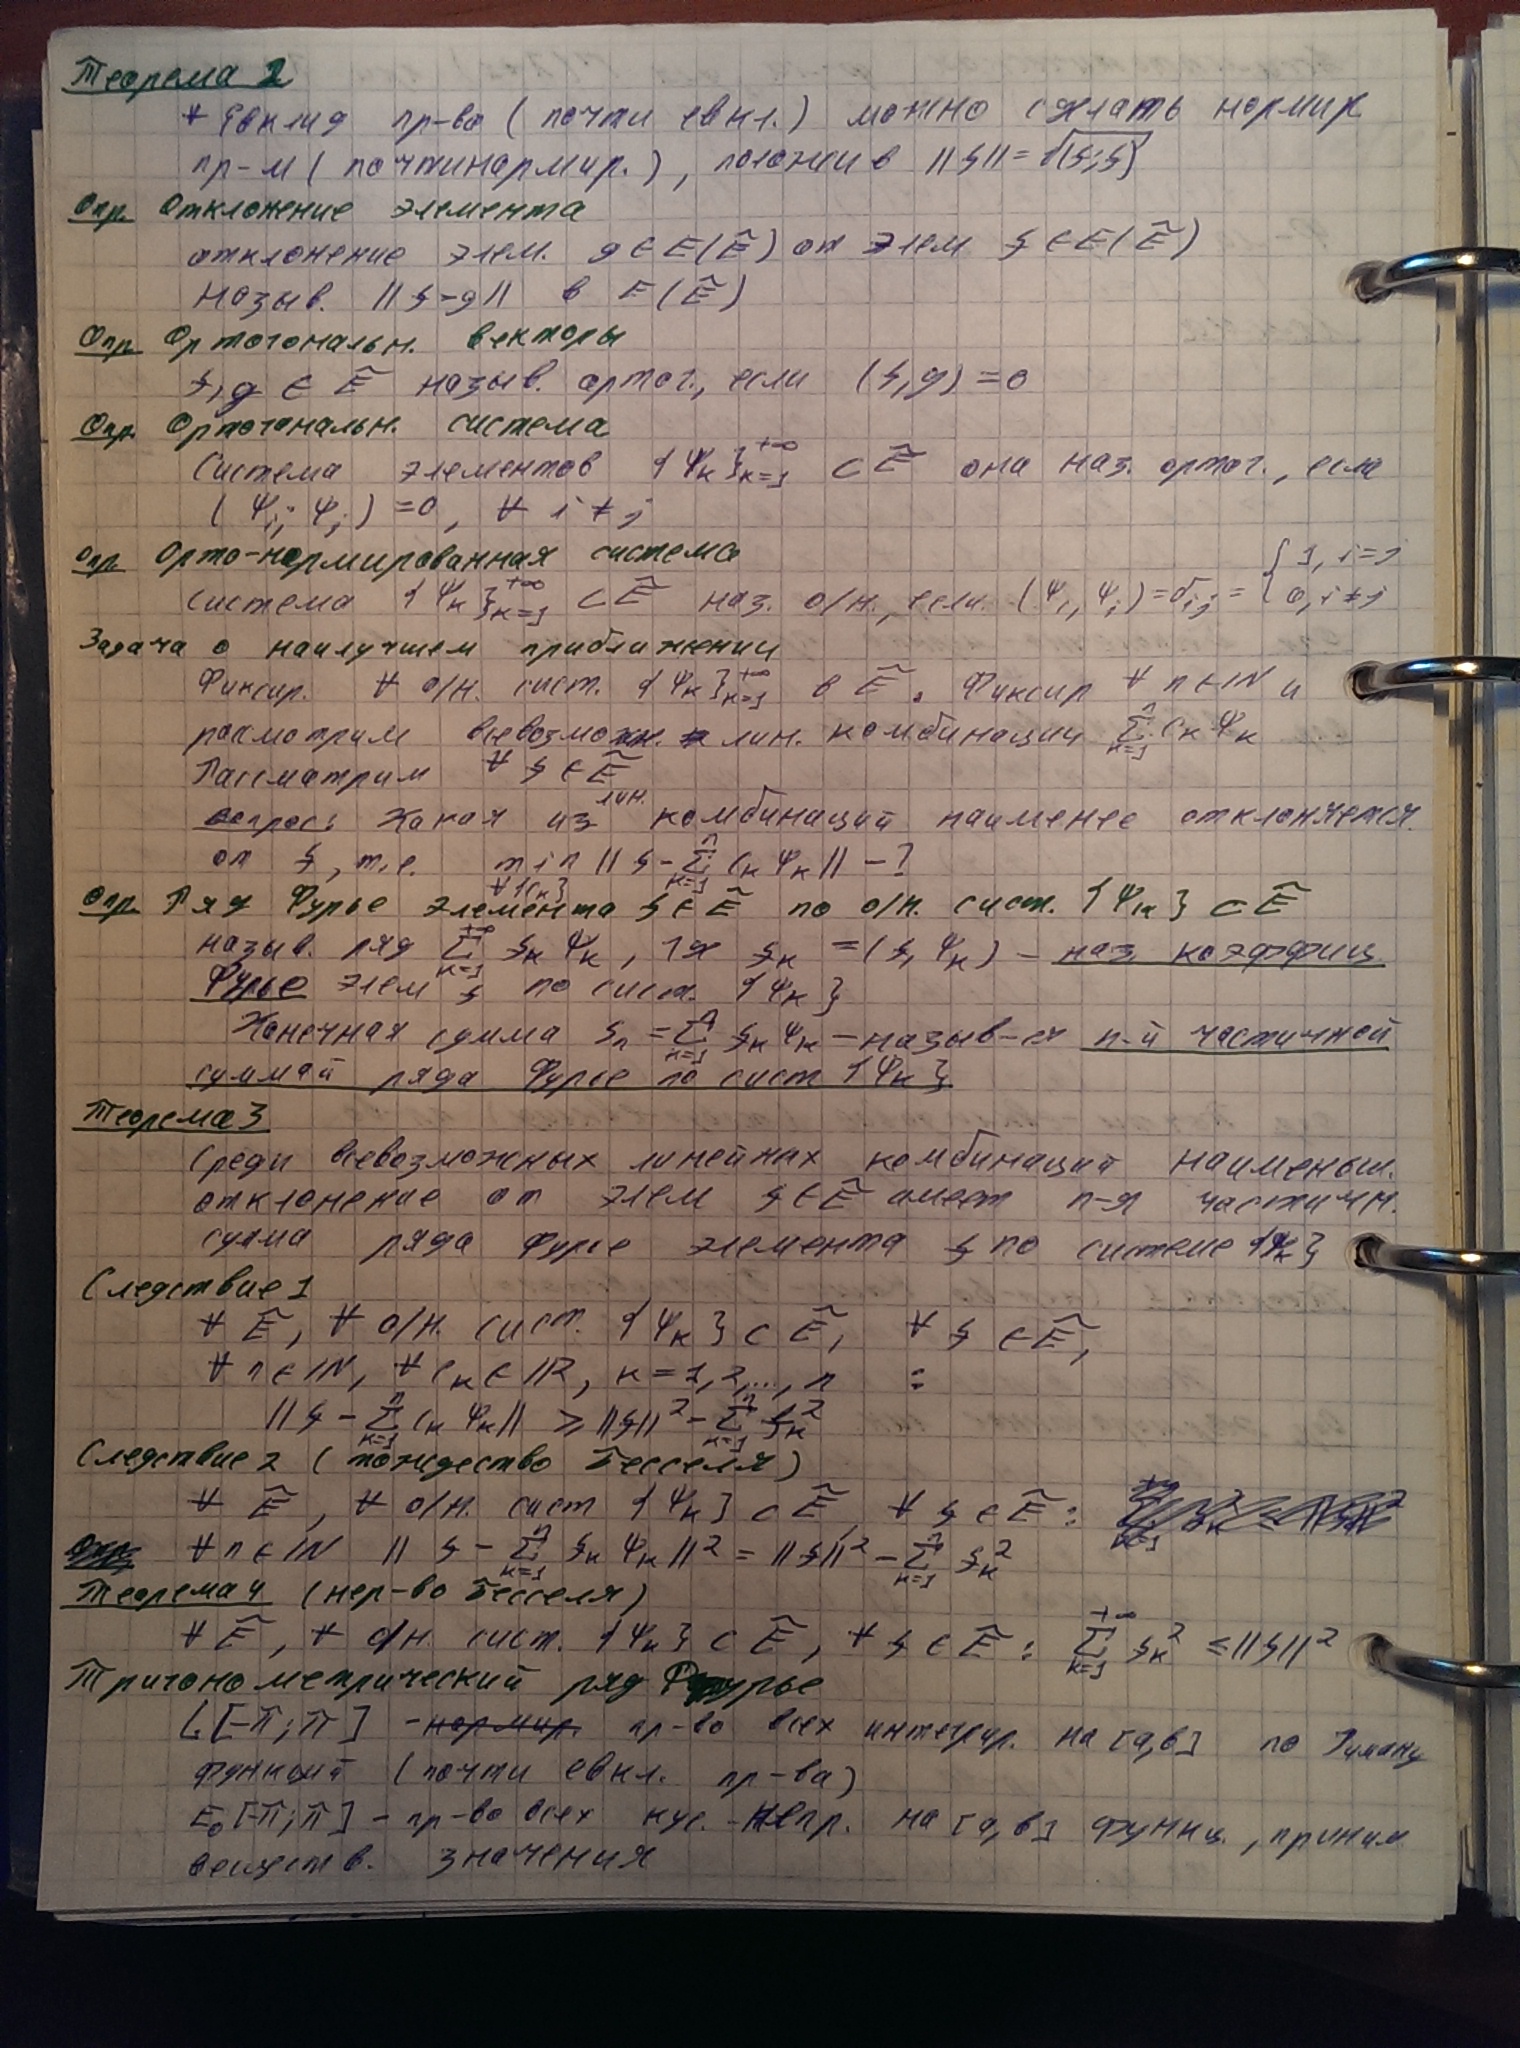 Теорема 2
∀ Евклид пр-во (почти евкл.) можно сделать нормир
пр-м (почтинормир.), положив ||f|| = √(f;f)
Опр. Отклонение элемента
отклонение элем. g ∈ E(Ẽ) от элем f ∈ E(Ẽ)
назыв. ||f-g|| в E(Ẽ)
Опр Ортогональн. векторы
f, g ∈ Ẽ назыв. ортог., если (f,g) = 0
Опр. Ортогональн. система
Система элементов {Ψ_k}_{k=1}^{+∞} ⊂ Ẽ она наз. ортог., если
(Ψ_i; Ψ_j) = 0, ∀ i ≠ j
Опр Орто-нормированная система
система {Ψ_k}_{k=1}^{+∞} ⊂ Ẽ наз. о/н., если (Ψ_i, Ψ_j) = δ_{ij} = { 1, i=j 0, i≠j
Задача о наилучшем приближении
Фиксир. ∀ о/н. сист. {Ψ_k}_{k=1}^{+∞} в Ẽ. Фиксир ∀ n ∈ ℕ и
расмотрим всевозможн. лин. комбинации ∑_{k=1}^{n} c_k Ψ_k
Рассматрим ∀ f ∈ Ẽ
вопрос: Какая из лин. комбинаций наименее отклоняется
от f, т.е. min_{∀{c_k}} ||f - ∑_{k=1}^{n} c_k Ψ_k|| - ?
Опр. Ряд Фурье элемента f ∈ Ẽ по о/н. сист. {Ψ_k} ⊂ Ẽ
назыв. ряд ∑_{k=1}^{+∞} f_k Ψ_k, где f_k = (f, Ψ_k) - наз. коэффиц
Фурье элем f по сист. {Ψ_k}
Конечная сумма S_n = ∑_{k=1}^{n} f_k Ψ_k - назыв-ся n-й частичной
суммой ряда Фурье по сист {Ψ_k}
Теорема 3
Среди всевозможных линейных комбинаций наименьш.
отклонение от элем f ∈ Ẽ имеет n-я частичн.
сумма ряда Фурье элемента f по системе {Ψ_k}
Следствие 1
∀ Ẽ, ∀ о/н. сист. {Ψ_k} ⊂ Ẽ, ∀ f ∈ Ẽ,
∀ n ∈ ℕ, ∀ c_k ∈ ℝ, k = 1,2,..., n :
||f - ∑_{k=1}^{n} c_k Ψ_k|| ≥ ||f||² - ∑_{k=1}^{n} f_k²
Следствие 2 (тождество Бесселя)
∀ Ẽ, ∀ о/н. сист {Ψ_k} ⊂ Ẽ, ∀ f ∈ Ẽ :
∀ n ∈ ℕ ||f - ∑_{k=1}^{n} f_k Ψ_k||² = ||f||² - ∑_{k=1}^{n} f_k²
Теорема 4 (нер-во Бесселя)
∀ Ẽ, ∀ о/н. сист. {Ψ_k} ⊂ Ẽ, ∀ f ∈ Ẽ : ∑_{k=1}^{+∞} f_k² ≤ ||f||²
Тригонометрический ряд Фурье
L[-π;π] - нормир. пр-во всех интегрир. на [a,b] по Риману
функций (почти евкл. пр-ва)
E₀[-π;π] - пр-во всех кус.-непр. на [a,b] функц., приним.
веществ. значения